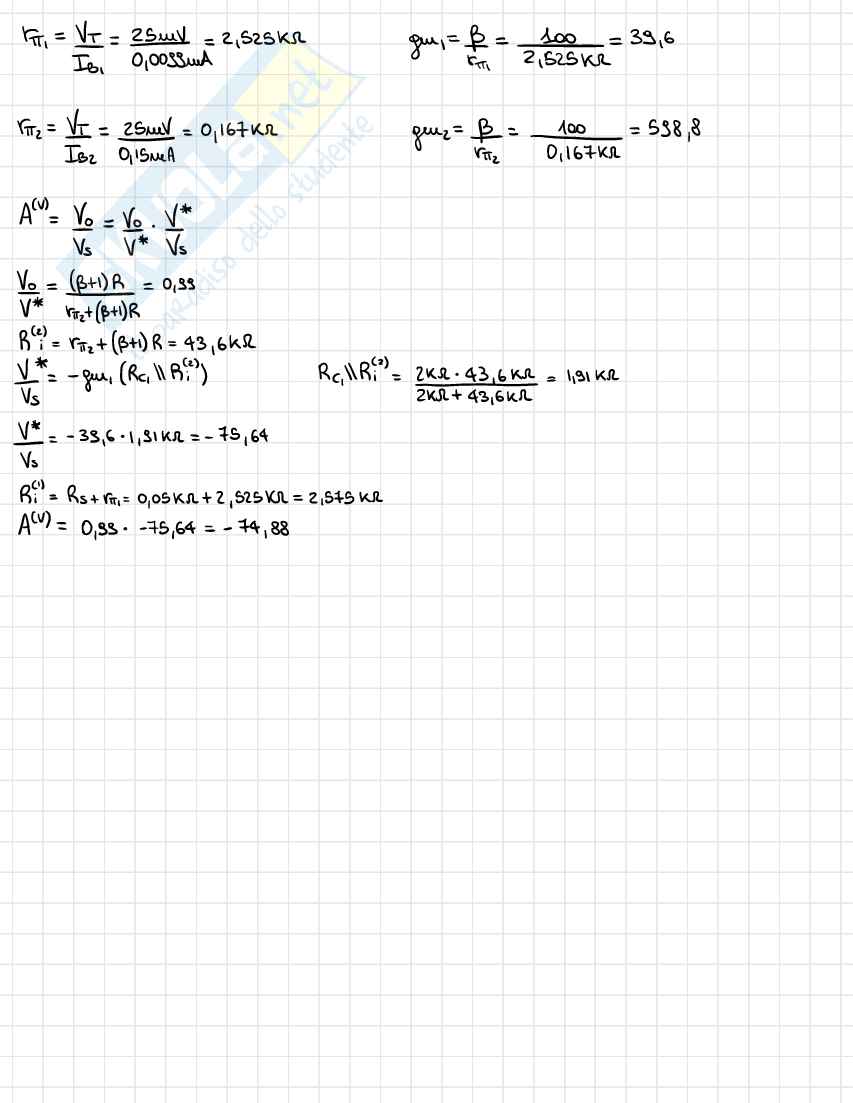 rπ₁ = V_T / I_B₁ = 25mV / 0,0099mA = 2,525KΩ    gm₁ = β / rπ₁ = 100 / 2,525KΩ = 39,6
rπ₂ = V_T / I_B₂ = 25mV / 0,15mA = 0,167KΩ    gm₂ = β / rπ₂ = 100 / 0,167KΩ = 598,8
A⁽ⱽ⁾ = Vo / Vs = Vo / V* · V* / Vs
Vo / V* = (β+1)R / rπ₂+(β+1)R = 0,99
Ri⁽²⁾ = rπ₂ + (β+1)R = 43,6KΩ
V* / Vs = -gm₁ (Rc₁ \\ Ri⁽²⁾)    Rc₁ \\ Ri⁽²⁾ = 2KΩ · 43,6KΩ / 2KΩ + 43,6KΩ = 1,91KΩ
V* / Vs = -39,6 · 1,91KΩ = -75,64
Ri⁽¹⁾ = Rs + rπ₁ = 0,05KΩ + 2,525KΩ = 2,575KΩ
A⁽ⱽ⁾ = 0,99 · -75,64 = -74,88
.net
paradiso dello studente